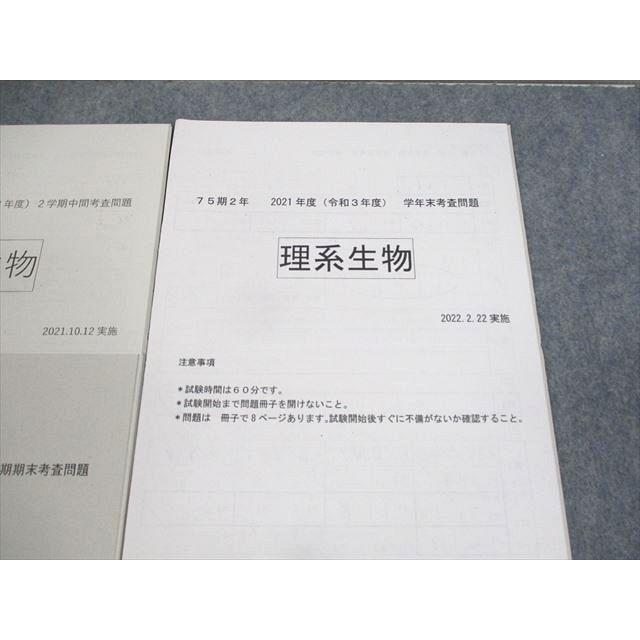 年度）２学期中間考査問題
物
2021.10.12 実施
期期末考査問題
７５期２年　2021 年度（令和３年度）　学年末考査問題
理系生物
2022.2.22 実施
注意事項
＊試験時間は６０分です。
＊試験開始まで問題冊子を開けないこと。
＊問題は　冊子で８ページあります。試験開始後すぐに不備がないか確認すること。